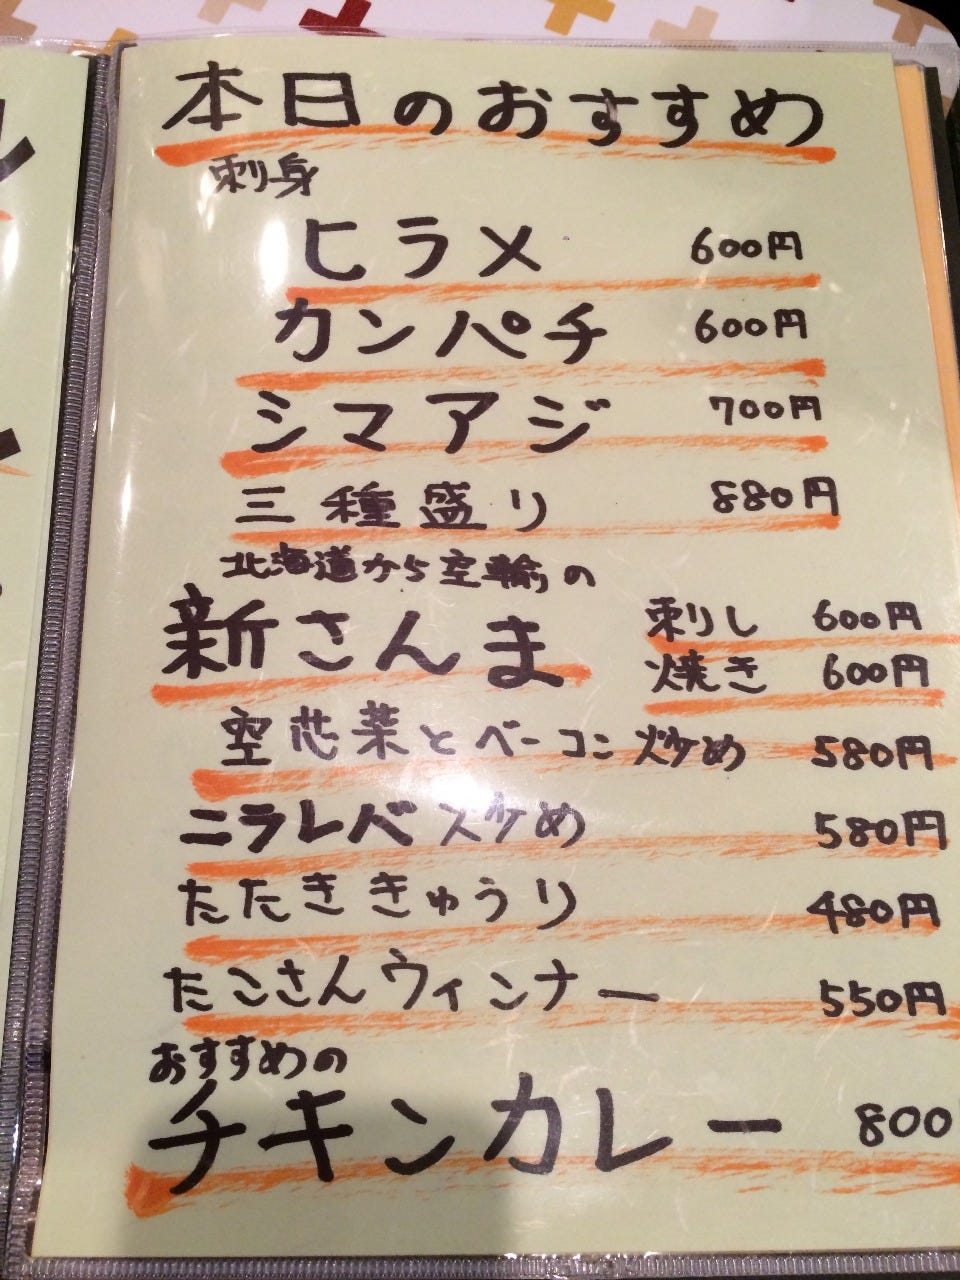 本日のおすすめ
刺身
ヒラメ 600円
カンパチ 600円
シマアジ 700円
三種盛り 880円
北海道から空輸の
新さんま 刺し 600円
焼き 600円
空芯菜とベーコン炒め 580円
ニラレバ炒め 580円
たたききゅうり 480円
たこさんウィンナー 550円
おすすめの
チキンカレー 800